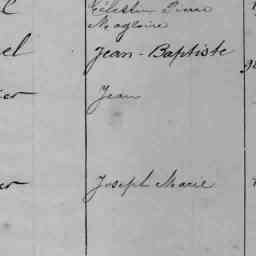 Célestin Pierre
Magloire
el Jean-Baptiste
Jean
Joseph Marie